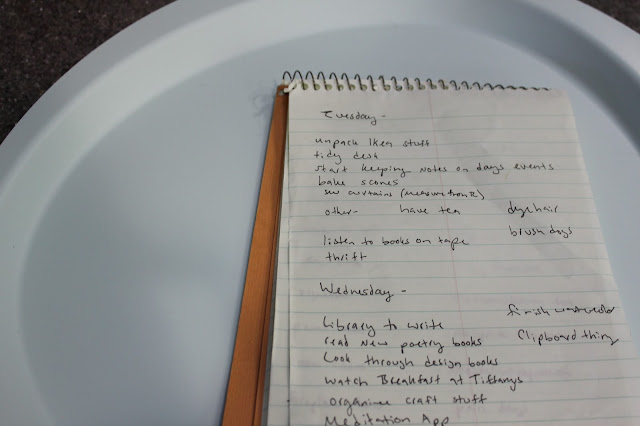 Tuesday -
unpack Ikea stuff
tidy desk
start keeping notes on days events
bake scones
sew curtains (measure
other- have tea dye hair
brush dogs
listen to books on tape
thrift
Wednesday -
finish watercolor
Library to write
Clipboard thing
read new poetry books
Look through design books
Watch Breakfast at Tiffanys
organize craft stuff
Meditation App